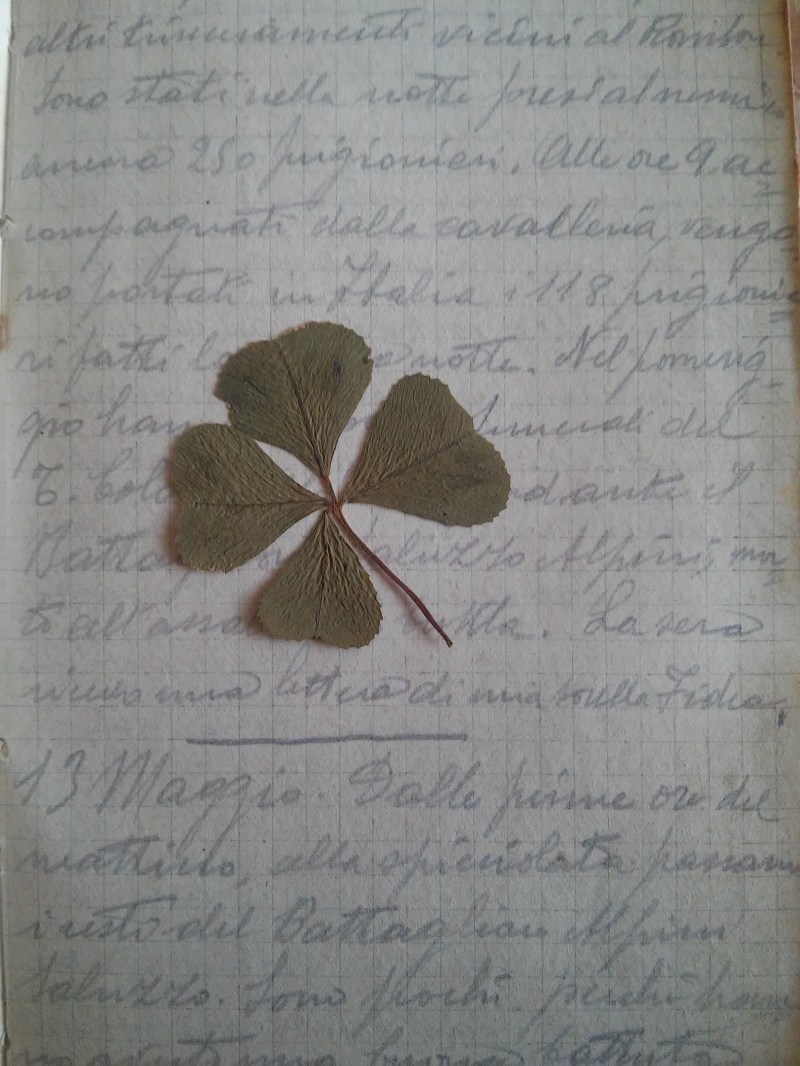 altri trinceramenti vicini al Rombon
Sono stati nella notte presi al nemico
ancora 250 prigionieri. Alle ore 9 ac=
compagnati dalla cavalleria, vengo=
no portati in Italia i 118 prigionie=
ri fatti la notte. Nel pomerig-
gio han funerali del
T. Col dante il
Battag aluzzo Alpini, mor=
to all'assa ukla. La sera
ricevo una lettera di mia sorella
13 Maggio. Dalle prime ore del
mattino, alla spicciolata passano
i resti del Battaglion Alpini
Saluzzo. Sono pochi perchè han
no avuto una buona battuta